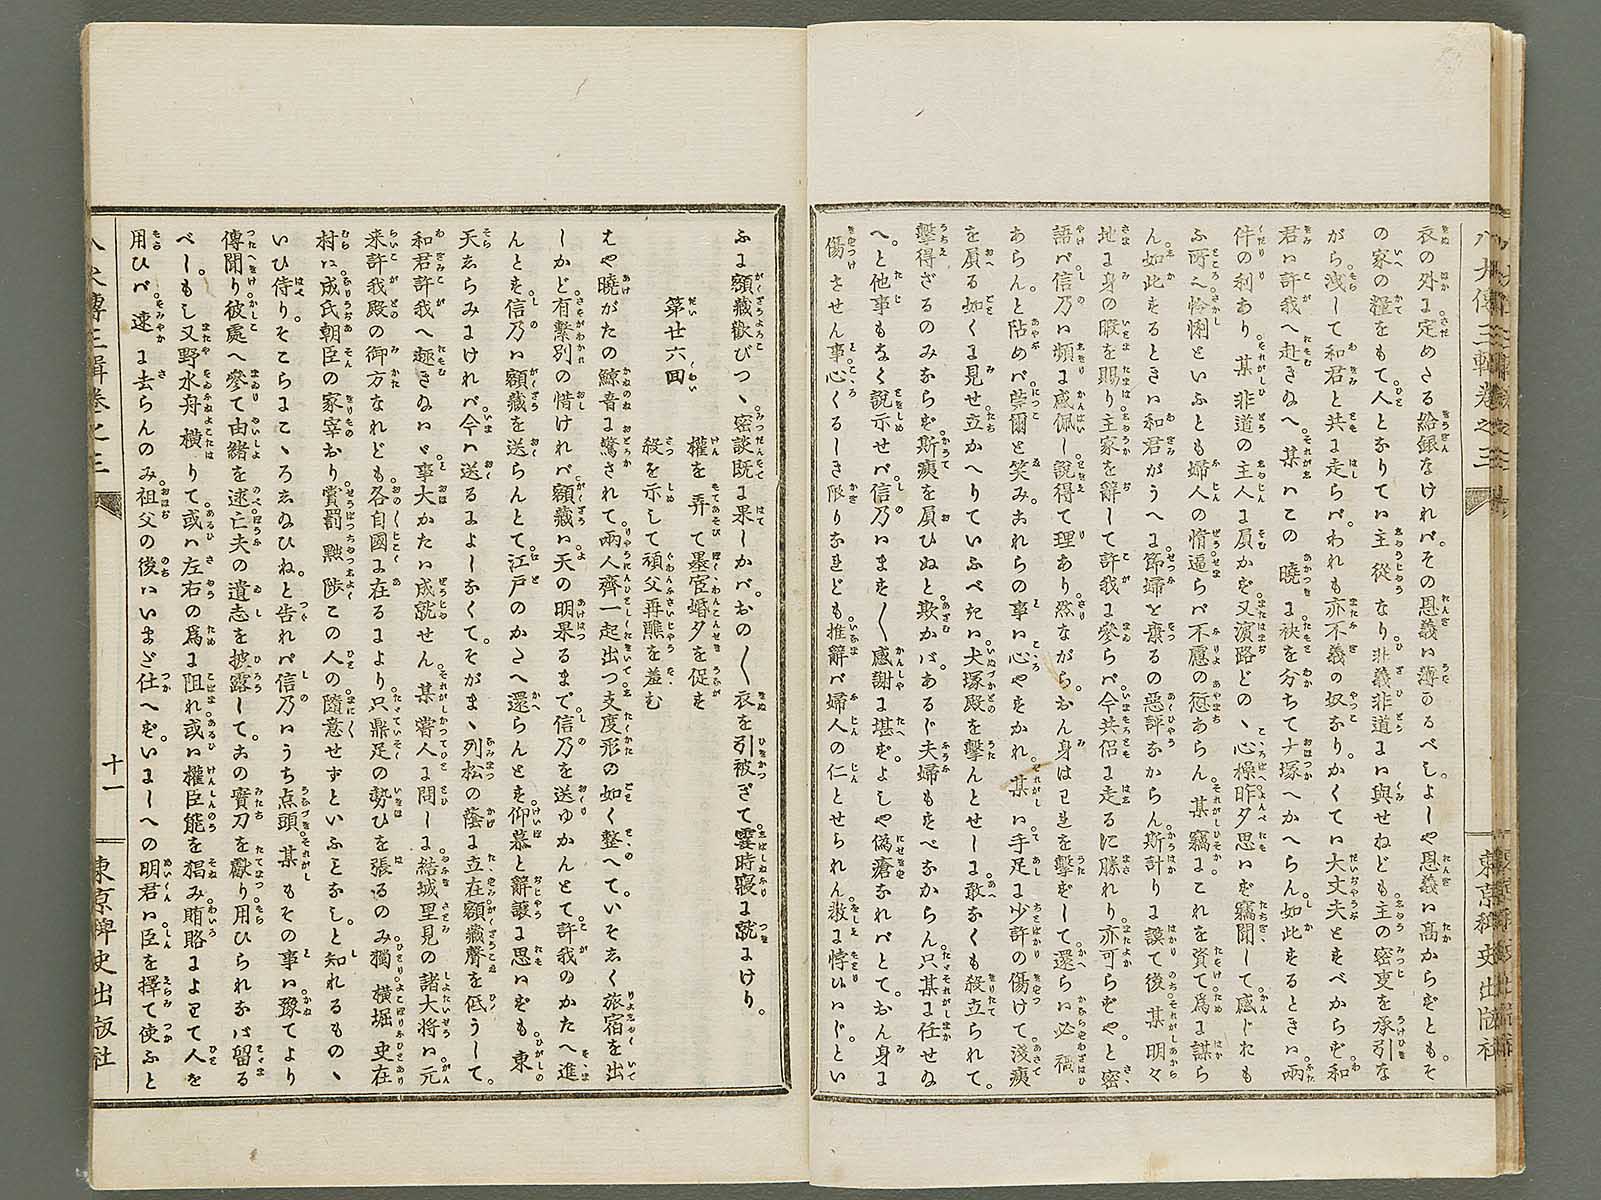 衣の外に定めたる給銀なけれバその恩義ハ薄かるべし。よしや恩義ハ高からずとも。そ
の家の糧をもて人となりてハ主従なり非義非道にハ與せねども。主の密事を承引な
がら洩して和君と共に走らバ。われも亦不義の奴なり。かくてハ大丈夫とすべからず。和
君ハ許我へ赴きねへ。某ハこの暁に袂を分ちて大塚へかへらん。如此するときハ。兩
件の利あり。某非道の主人に屓かず。又濱路どのゝ心操昨夕思ハず竊聞して感じたも
ふ所へ怜悧といふとも婦人の情逼らバ不慮の愆あらん。某竊にこれを資て為に謀ら
ん。如此するときハ和君がうへに節婦を棄るの惡評なからん。斯計りに謨て後。某明々
地に身の暇を賜り主家を辭して許我に參らバ今共侶に走るに勝れり。亦可らずや。と密
語バ。信乃ハ頻に感佩し説得て理あり。然ながら。おん身はわれを撃ずして還らバ必禍
あらん。と阽めバ莞爾と笑み。それらの事ハ心やすかれ。某ハ手足に少許の傷けて。淺痍
を屓る如くに見せ立かへりていふべきハ犬塚殿を撃んとせしに敢なくも殺立られて。
撃得ざるのみならず。斯痍を屓ひぬと欺かバ。あるじ夫婦もすべなからん。只某に任せね
へ。と他事もなく説示せバ。信乃ハます〳〵感謝に堪ず。よしや偽瘡なれバとて。おん身に
傷させん事。心くるしき限りなれども。推辭バ婦人の仁とせられん。教に悖ハじ。とい
八犬傳三輯卷之三
東京稗史出版社
ふに額藏歡びつゝ密談既に果しかバ。おの〳〵衣を引被ぎて。霎時寢に就にけり。
第廿六回
權を弄て墨官婚夕を促す
殺を示して頑父再醮を羞む
はや曉がたの鯨音に驚されて。兩人齊一起出つ支度形の如く整へて。いそしく旅宿を出
しかど有繋別の惜けれバ額藏ハ天の明果るまで信乃を送ゆかんとて許我のかたへ進
んとすを信乃ハ額藏を送らんとて江戸のかたへ還らんとす。仰慕と辭讓に思ハずも東
天しらみにけれバ。今ハ送るによしなくて。そがまゝ列松の蔭に立在。額藏聲を低うして。
和君許我へ趣きねハゞ。事大かたハ成就せん。某嘗人に問しに結城里見の諸大将ハ元
来許我殿の御方なれども。各自國に在るにより只鼎足の勢ひを張るのみ獨横堀史在
村ハ。成氏朝臣の家宰なり賞罰黜陟この人の隨意せずといふことなし。と知れるものゝ
いひ侍り。そこらにこゝろしねひね。と告れバ信乃ハうち点頭。某もその事ハ豫てより
傳聞り彼處へ參て由緒を述。亡夫の遺志を披露して。この寶刀を獻り用ひられなバ留る
べし。もし又野水舟横りて。或ハ左右の為に阻れ或ハ權臣能を猖み賄賂によりて人を
用ひバ。速に去らんのみ。祖父の後ハいまだ仕へず。いにしへの明君ハ。臣を擇て使ふと
八犬傳三輯卷之三
十一
東京稗史出版社